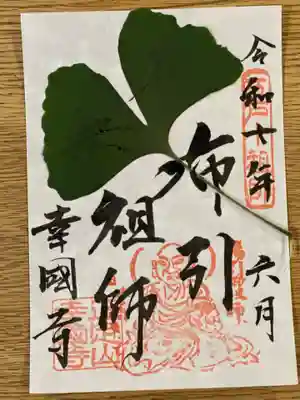 令和七年
六月
布引
祖師
幸國寺